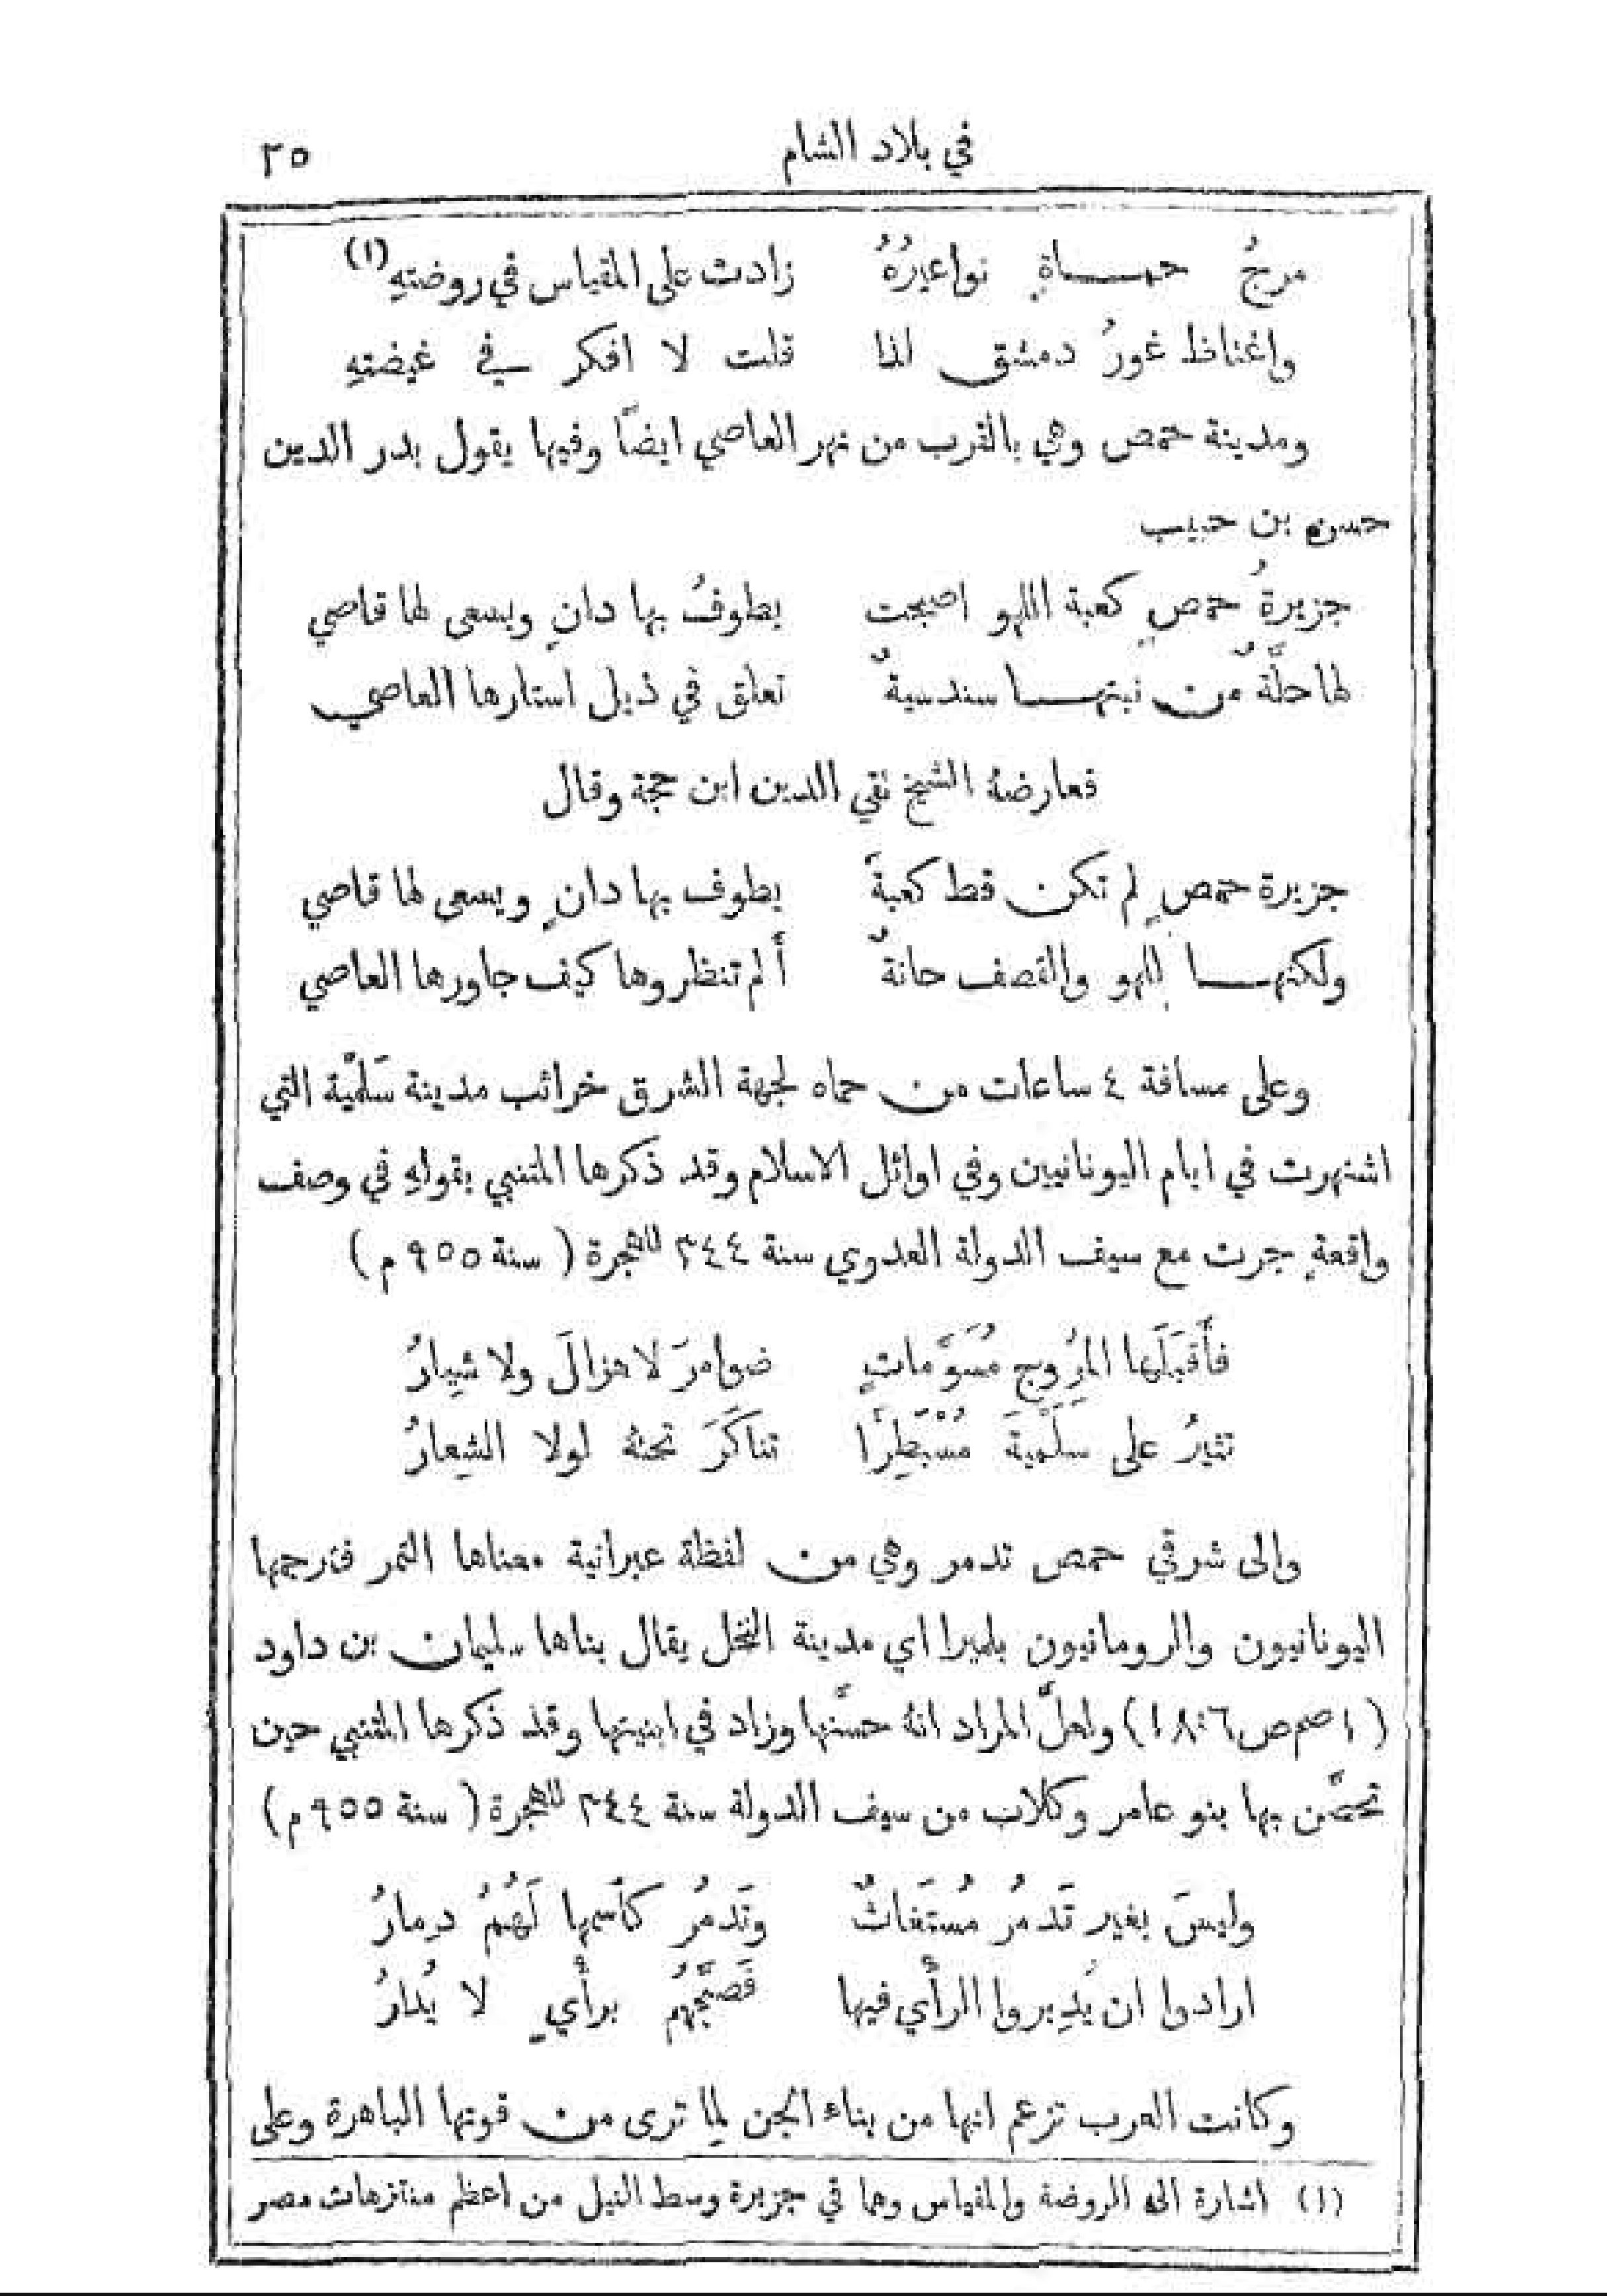 في بلاد الشام ٢٥
مرجُ حمـــاةٍ نواعيرُهُ زادت على المقياس في روضتهِ (١)
واغتاظ غورُ دمشق لذا قلت لا افكر في غيضتهِ
ومدينة حمص وهي بالقرب من نهر العاصي ايضًا وفيها يقول بدر الدين
حسن بن حبيب
جزيرةُ حمصٍ كعبة اللهو اصبحت يطوفُ بها دانٍ ويسعى لها قاصي
لها حلَّةٌ من نبتهـــا سندسيةٌ تعلق في ذيل استارها العاصي
فعارضهُ الشيخ تقي الدين ابن حجة وقال
جزيرة حمصٍ لم تكن قط كعبةً يطوف بها دانٍ ويسعى لها قاصي
ولكنهـــا للهو والقصف حانةٌ أَلم تنظروها كيف جاورها العاصي
وعلى مسافة ٤ ساعات من حماه لجهة الشرق خرائب مدينة سَلَمْيَّة التي
اشتهرت في ايام اليونانيين وفي اوائل الاسلام وقد ذكرها المتنبي بقولهِ في وصف
واقعةٍ جرت مع سيف الدولة العدوي سنة ٣٤٤ للهجرة ( سنة ٩٥٥ م )
فأَقبَلَها المُرُوجِ مُسَوَّماتٍ ضوامرَ لا هزالَ ولا شِيارُ
تثيرُ على سلَمْيَةَ مُسْبَطِرًّا تناكَرَ تحتهُ لولا الشِعارُ
والى شرقي حمص تدمر وهي من لفظة عبرانية معناها التمر فترجمها
اليونانيون والرومانيون بلميرا اي مدينة النخل يقال بناها سليمان بن داود
( ١ صم ص ٦ : ١٨ ) ولعلَّ المراد انهُ حسَّنها وزاد في ابنيتها وقد ذكرها المتنبي حين
تحصَّن بها بنو عامر وكلاب من سيف الدولة سنة ٣٤٤ للهجرة ( سنة ٩٥٥ م )
وليسَ بغير تَدمُرَ مُستَغاثٌ وتَدمُرُ كأسمها لَهُمُ دِمارُ
ارادوا ان يُدِيروا الرأْي فيها فَصبَّحَهُم برأْيٍ لا يُدارُ
وكانت العرب تزعم انها من بناء الجن لما ترى من قوتها الباهرة وعلى
(١) اشارة الى الروضة والمقياس وهما في جزيرة وسط النيل من اعظم منتزهات مصر